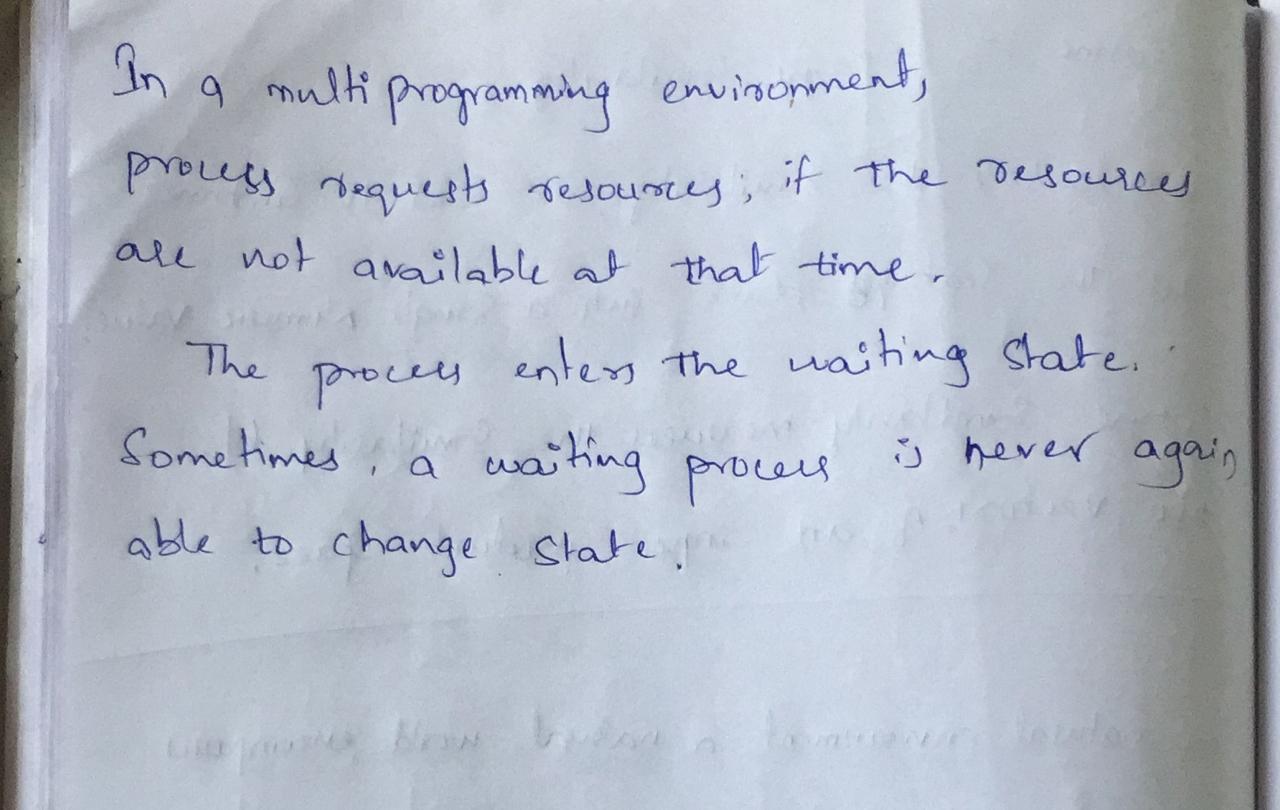 In a multiprogramming environment,
process requests resources; if the resources
are not available at that time.
The process enters the waiting state.
Sometimes, a waiting process is never again
able to change state.